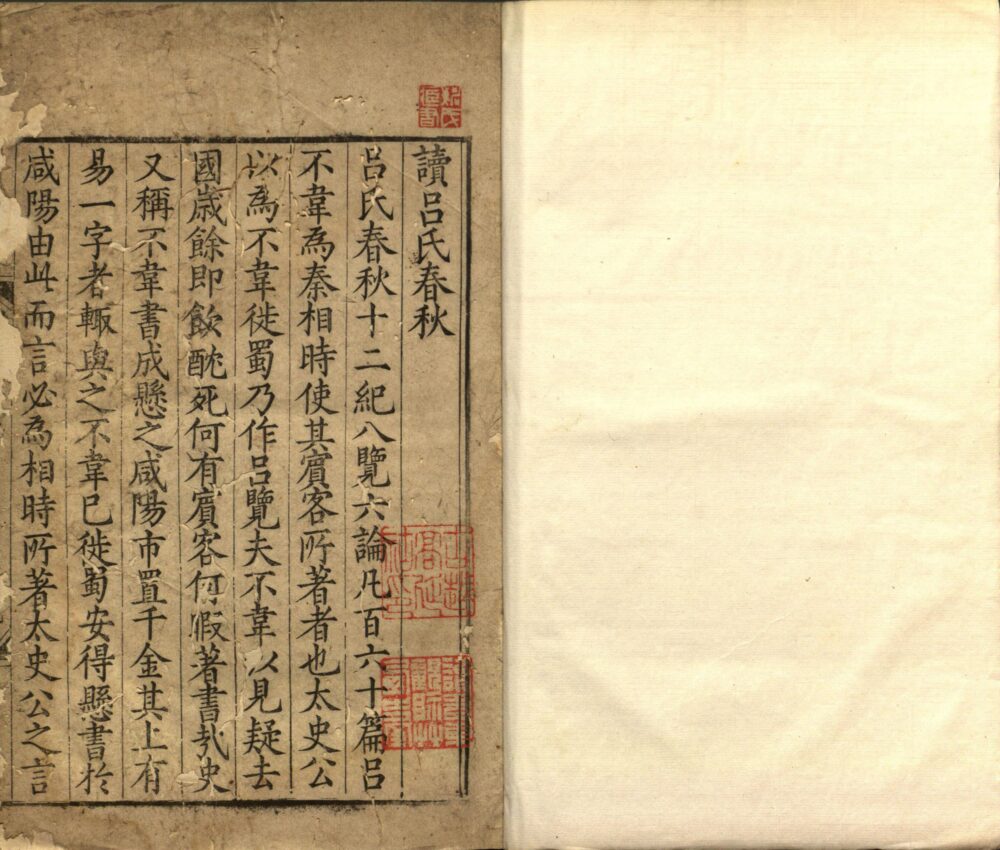 讀呂氏春秋
呂氏春秋十二紀八覽六論凡百六十篇呂
不韋為秦相時使其賔客所著者也太史公
以為不韋徙蜀乃作呂覽夫不韋以見疑去
國歲餘即飲酖死何有賔客何假著書哉史
又稱不韋書成懸之咸陽市置千金其上有
易一字者輙與之不韋已徙蜀安得懸書於
咸陽由此而言必為相時所著太史公之言